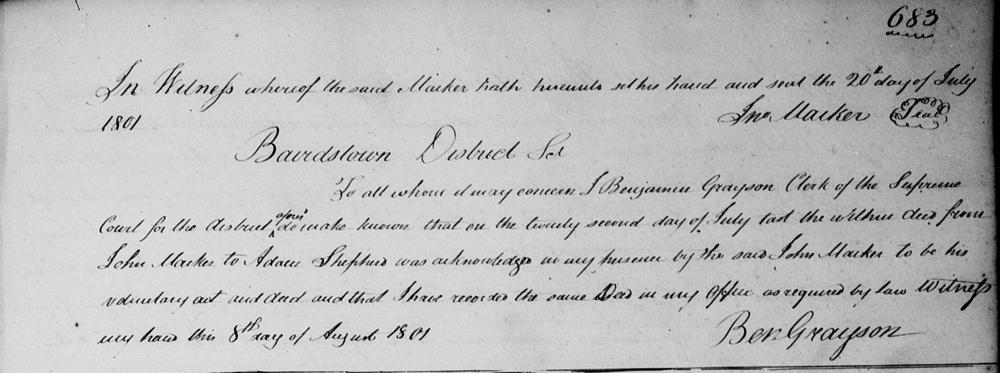 683
In Witness whereof the said Macker hath hereunto set his hand and seal the 20th day of July
1801 Jno. Macker Seal
Bairdstown District Sct
To all whom it may concern I Benjamin Grayson Clerk of the Supreme
Court for the district afsd do make known that on the twenty second day of July last the within deed from
John Macker to Adam Shepherd was acknowledged in my presence by the said John Macker to be his
voluntary act and deed and that I have recorded the same Deed in my office as required by law Witness
my hand this 8th day of August 1801 Ben Grayson